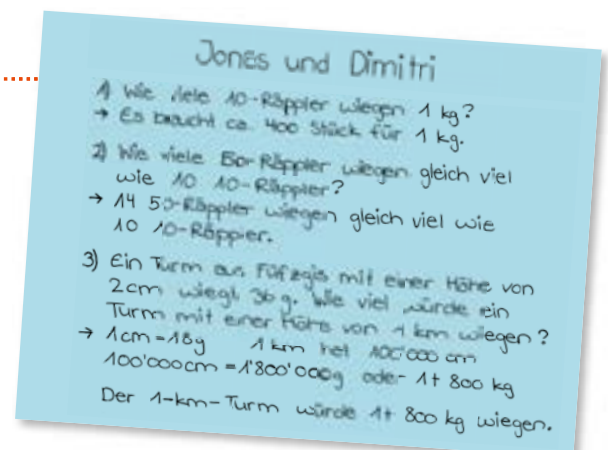 Jonas und Dimitri
1) Wie viele 10-Räppler wiegen 1 kg?
→ Es braucht ca. 400 Stück für 1 kg.
2) Wie viele 50-Räppler wiegen gleich viel
wie 10 10-Räppler?
→ 14 50-Räppler wiegen gleich viel wie
10 10-Räppler.
3) Ein Turm aus Füfzgis mit einer Höhe von
2cm wiegt 36 g. Wie viel würde ein
Turm mit einer Höhe von 1 km wiegen?
→ 1cm = 18g 1 km het 100'000 cm
100'000cm = 1'800'000g oder 1t 800 kg
Der 1-km-Turm würde 1t 800 kg wiegen.